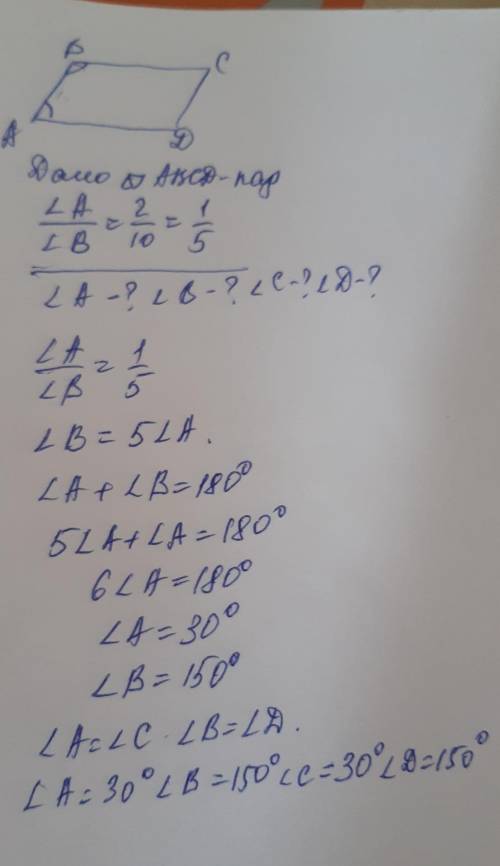 B
C
A
D
Дано ▱ ABCD-пар
∠A/∠B = 2/10 = 1/5
∠A-? ∠B-? ∠C-? ∠D-?
∠A/∠B = 1/5
∠B = 5∠A.
∠A + ∠B = 180°
5∠A + ∠A = 180°
6∠A = 180°
∠A = 30°
∠B = 150°
∠A = ∠C . ∠B = ∠D.
∠A = 30° ∠B = 150° ∠C = 30° ∠D = 150°